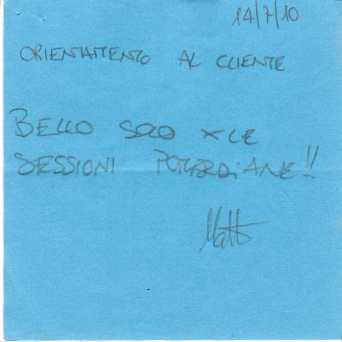 14/7/10
ORIENTAMENTO AL CLIENTE
BELLO SOLO X LE
SESSIONI POMERDIANE!!
Matt